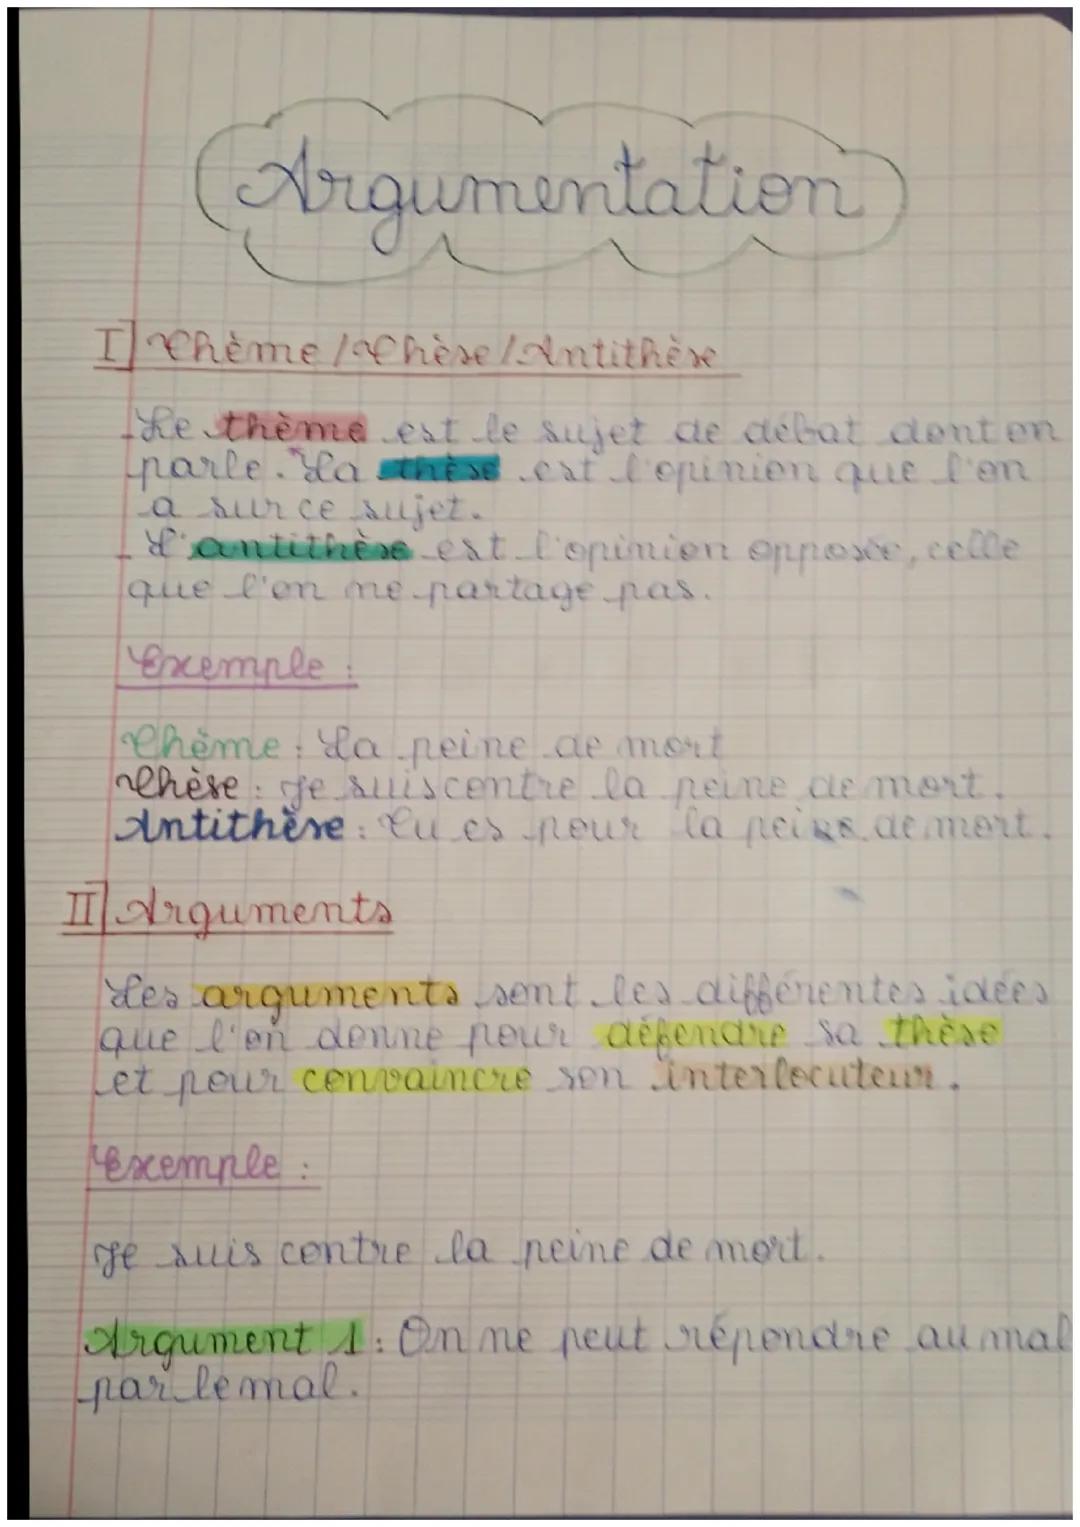 Argumentation
I] Thème / Thèse / Antithèse
Le thème est le sujet de débat dont on
parle. La thèse est l'opinion que l'on
a sur ce sujet.
L'antithèse est l'opinion opposée, celle
que l'on ne partage pas.
Exemple :
Thème : La peine de mort
Thèse : Je suis contre la peine de mort.
Antithèse : Tu es pour la peine de mort.
II] Arguments
Les arguments sont les différentes idées
que l'on donne pour défendre sa thèse
et pour convaincre son interlocuteur.
Exemple :
Je suis contre la peine de mort.
Argument 1 : On ne peut répondre au mal
par le mal.